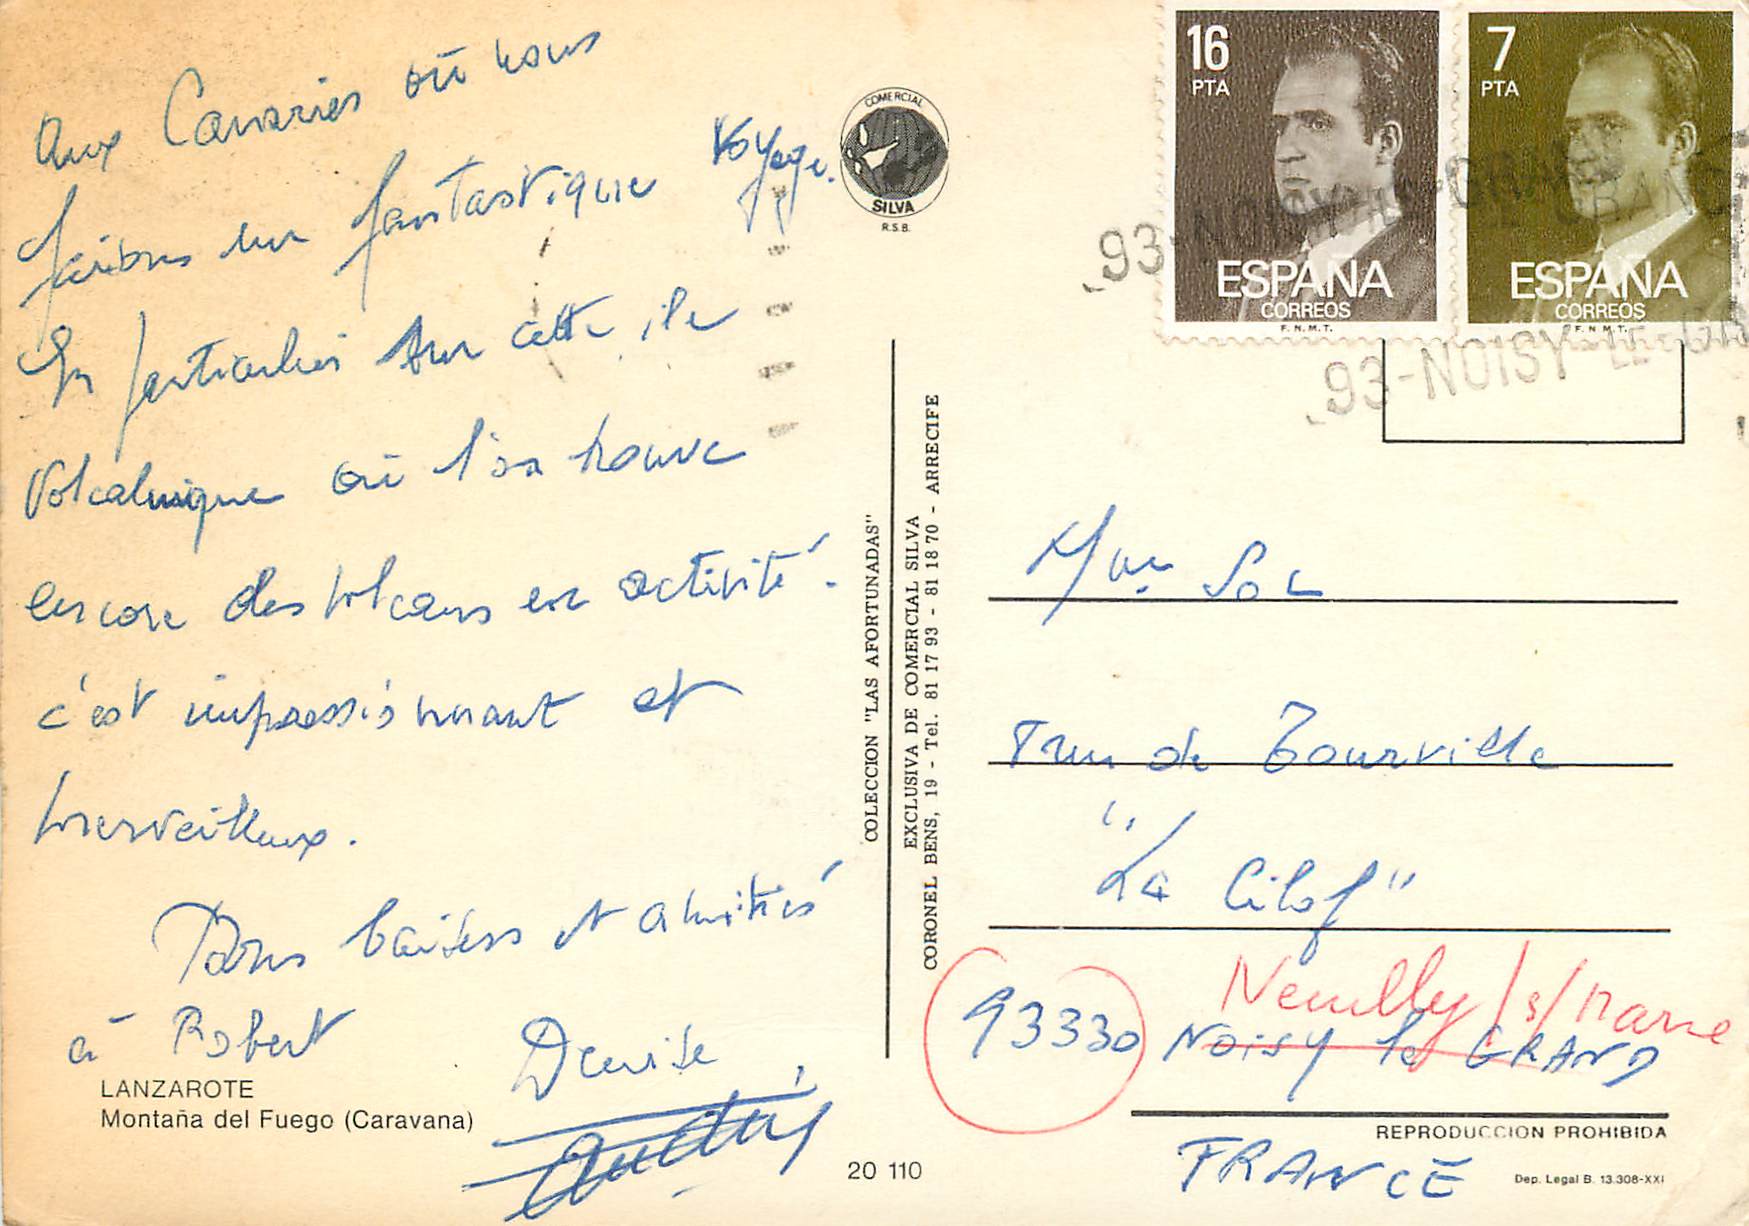 Aux Canaries où nous
faisons un fantastique voyage.
En particulier sur cette ile
Volcanique où l'on trouve
encore des volcans en activité.
c'est impressionnant et
merveilleux.
Bons baisers et amitiés
à Robert
Denise
LANZAROTE
Montaña del Fuego (Caravana)
COMERCIAL
SILVA
R.S.B.
COLECCION "LAS AFORTUNADAS"
EXCLUSIVA DE COMERCIAL SILVA
CORONEL BENS, 19 - Tel. 81 17 93 - 81 18 70 - ARRECIFE
20 110
16
PTA
ESPAÑA
CORREOS
F.N.M.T.
7
PTA
ESPAÑA
CORREOS
F.N.M.T.
93-NOISY-LE-GRAND
93-NOISY-LE-GR
Mme Sol
de Tourville
"La
Neuilly/s/Marne
93330 NOISY le GRAND
FRANCE
REPRODUCCION PROHIBIDA
Dep. Legal B. 13.308-XXI